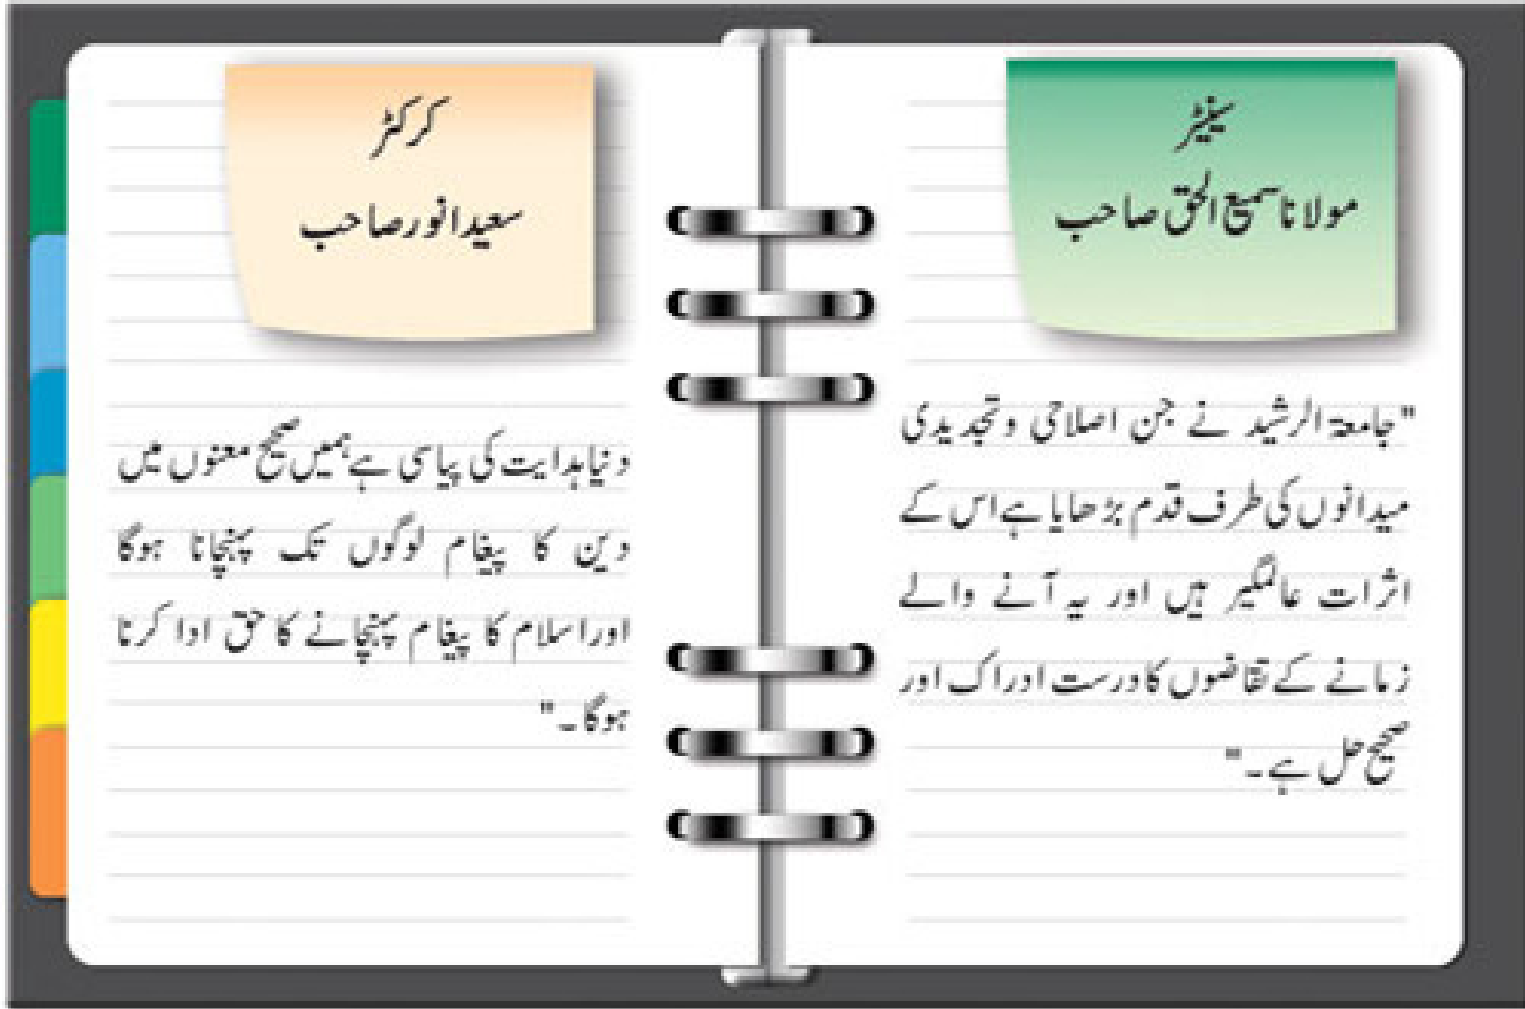 سینیٹر
مولانا سمیع الحق صاحب
"جامعۃ الرشید نے جن اصلاحی و تجدیدی
میدانوں کی طرف قدم بڑھایا ہے اس کے
اثرات عالمگیر ہیں اور یہ آنے والے
زمانے کے تقاضوں کا درست ادراک اور
صحیح حل ہے۔"
کرکٹر
سعید انور صاحب
دنیا ہدایت کی پیاسی ہے ہمیں صحیح معنوں میں
دین کا پیغام لوگوں تک پہنچانا ہوگا
اور اسلام کا پیغام پہنچانے کا حق ادا کرنا
ہوگا۔"